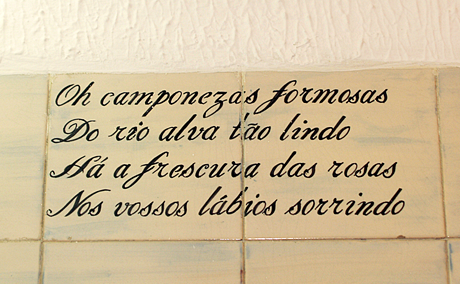 Oh camponezas formosas
Do rio alva tão lindo
Há a frescura das rosas
Nos vossos lábios sorrindo